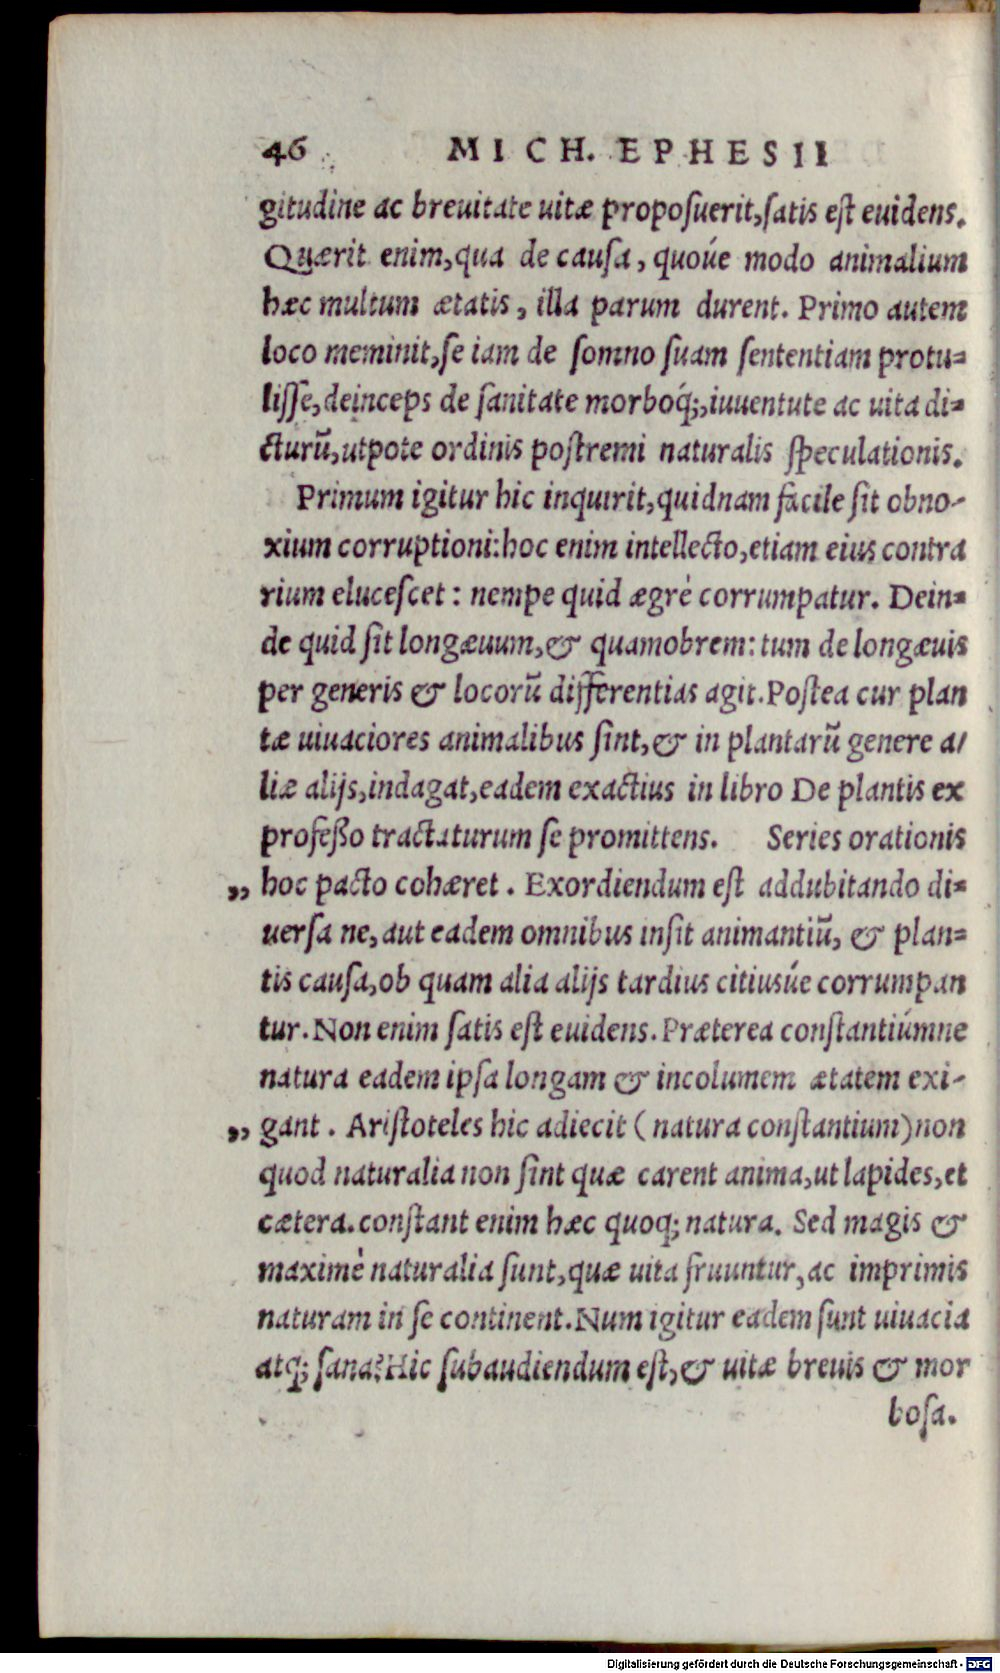 46 MICH. EPHESII
gitudine ac breuitate uitæ proposuerit, satis est euidens.
Quærit enim, qua de causa, quoúe modo animalium
hæc multum ætatis, illa parum durent. Primo autem
loco meminit, se iam de somno suam sententiam protu=
lisse, deinceps de sanitate morboq́;, iuuentute ac uita di=
cturũ, utpote ordinis postremi naturalis speculationis.
Primum igitur hic inquirit, quidnam facile sit obno-
xium corruptioni: hoc enim intellecto, etiam eius contra
rium elucescet: nempe quid ægrè corrumpatur. Dein=
de quid sit longæuum, & quamobrem: tum de longæuis
per generis & locorũ differentias agit. Postea cur plan
tæ uiuaciores animalibus sint, & in plantarũ genere a/
liæ alijs, indagat, eadem exactius in libro De plantis ex
profeßo tractaturum se promittens. Series orationis
„ hoc pacto cohæret. Exordiendum est addubitando di=
uersa ne, aut eadem omnibus insit animantiũ, & plan=
tis causa, ob quam alia alijs tardius citiusúe corrumpan
tur. Non enim satis est euidens. Præterea constantiúmne
natura eadem ipsa longam & incolumem ætatem exi-
„ gant. Aristoteles hic adiecit (natura constantium) non
quod naturalia non sint quæ carent anima, ut lapides, et
cætera. constant enim hæc quoq; natura. Sed magis &
maximè naturalia sunt, quæ uita fruuntur, ac imprimis
naturam in se continent. Num igitur eadem sunt uiuacia
atq; sana? Hic subaudiendum est, & uitæ breuis & mor
bosa.
Digitalisierung gefördert durch die Deutsche Forschungsgemeinschaft - DFG